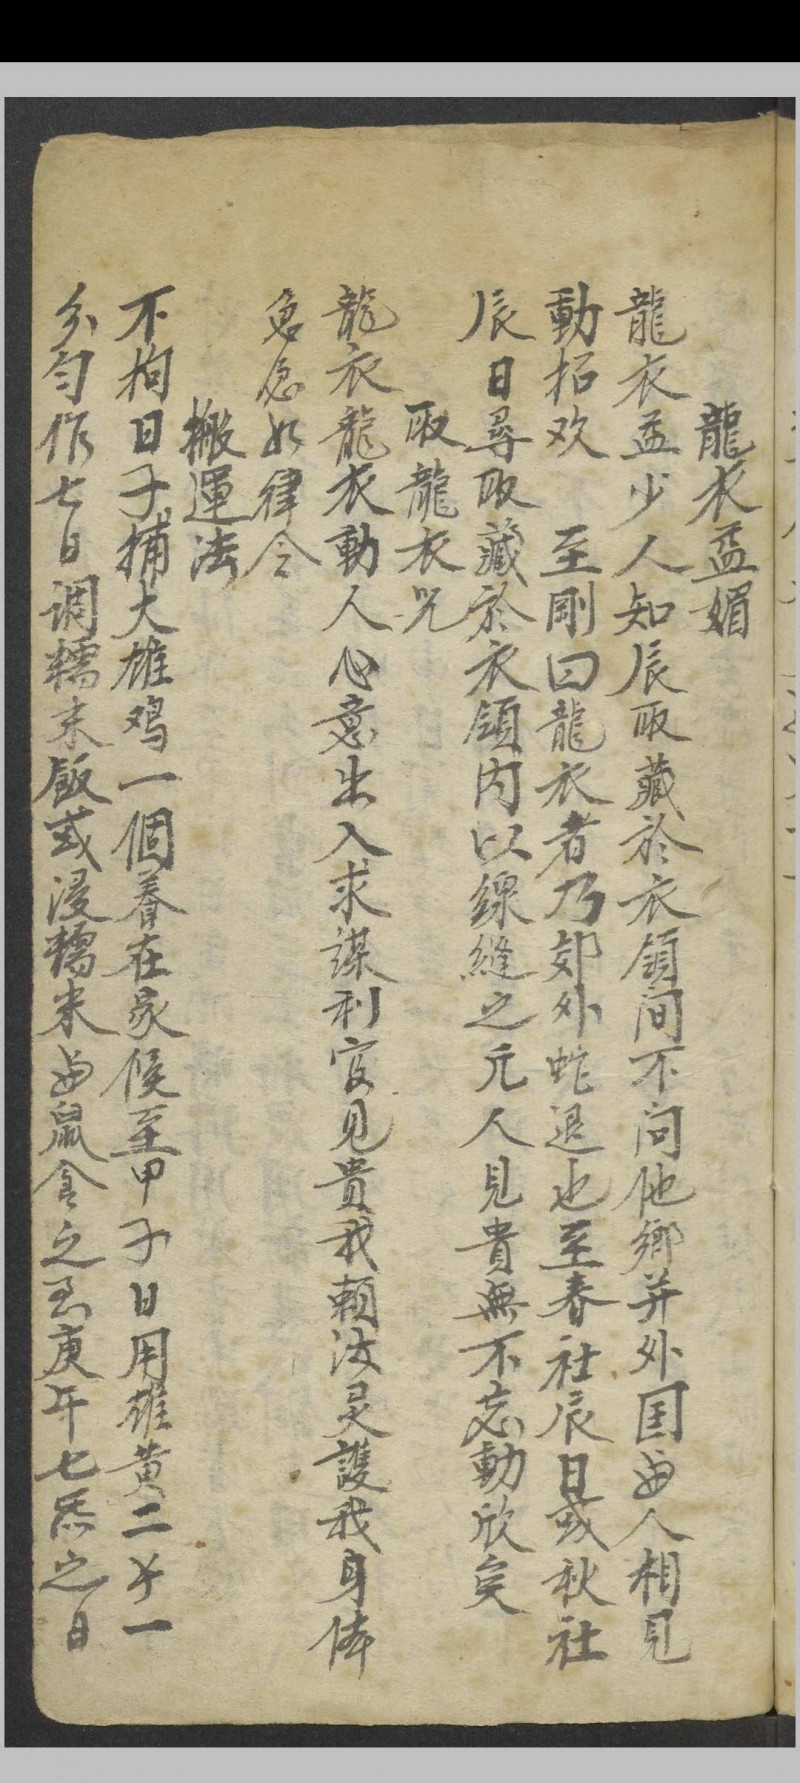 龍衣益媚
龍衣益少人知辰取藏於衣領间不问他鄉并外国与人相見
動招欢　至剛曰龍衣者乃郊外蛇退也至春社辰日或秋社
辰日尋取藏於衣領内以線縫之凢人見貴無不忘動欣矣
取龍衣咒
龍衣龍衣動人心意出入求謀利官見貴我頼汝灵護我身体
急急如律令
搬運法
不拘日子捕大雄鸡一個養在家候至甲子日用雄黄二分一
分匀作七日调糯米飯或浸糯米与鼠食之至庚午七炁之日